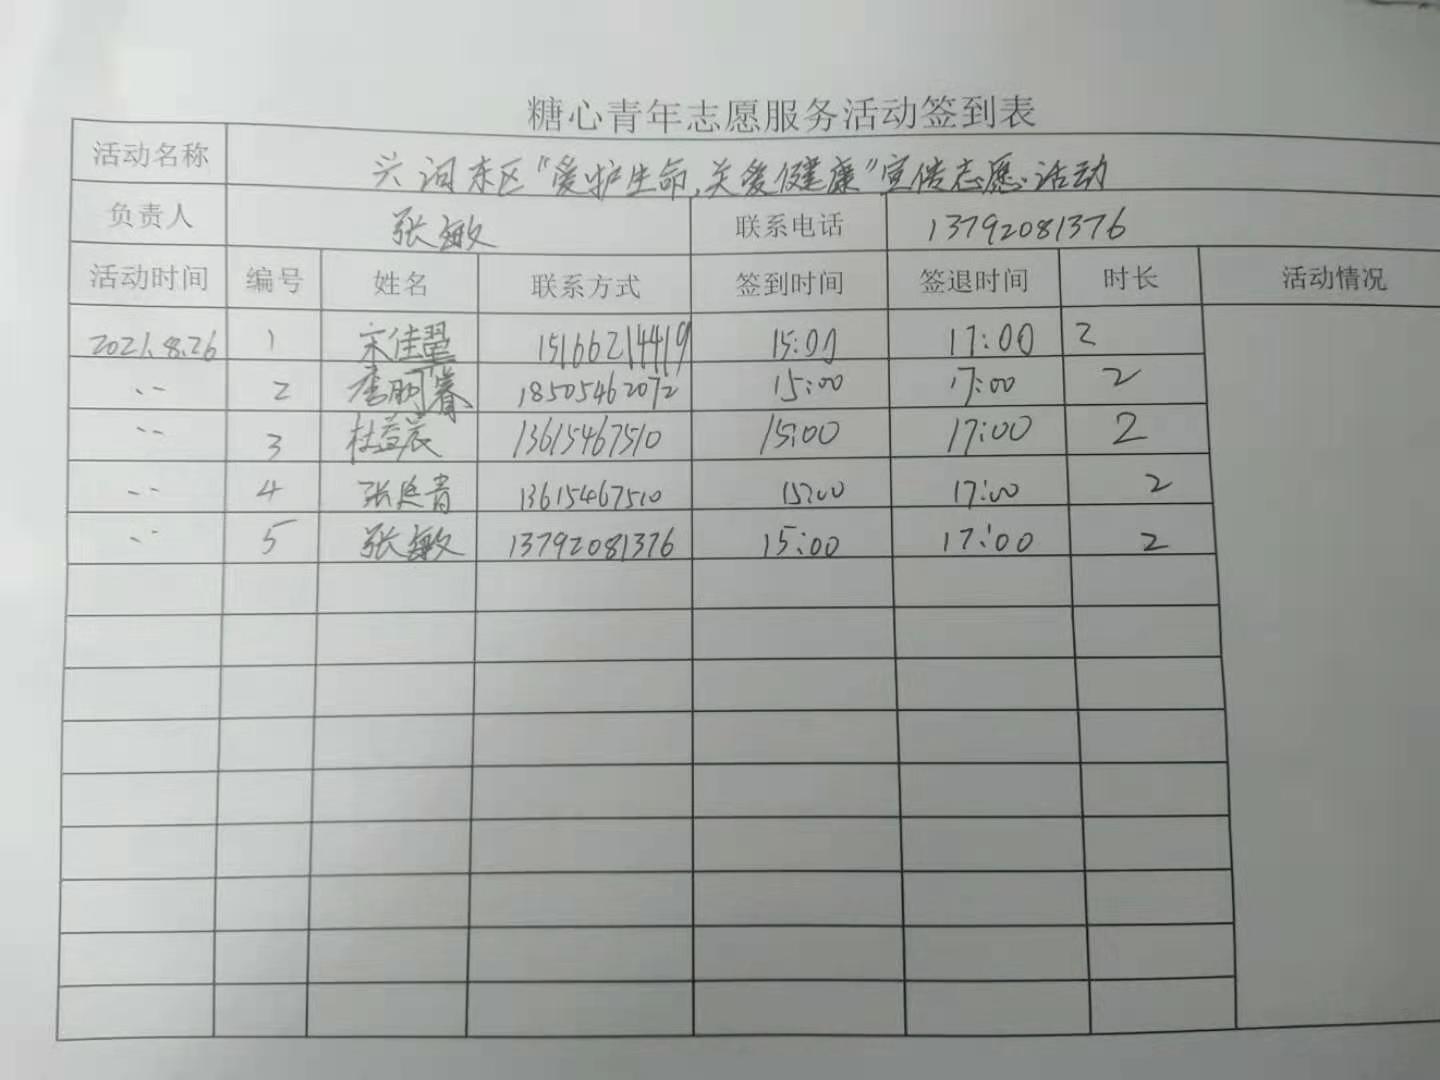 糖心青年志愿服务活动签到表
活动名称 兴河东区“爱护生命,关爱健康”宣传志愿活动
负责人 张敏 联系电话 13792081376
活动时间 编号 姓名 联系方式 签到时间 签退时间 时长 活动情况
2021.8.26 1 宋佳翼 15166214419 15:00 17:00 2
-- 2 李明睿 18505462072 15:00 17:00 2
-- 3 杜益宸 13615467510 15:00 17:00 2
-- 4 张延青 13615467510 15:00 17:00 2
-- 5 张敏 13792081376 15:00 17:00 2